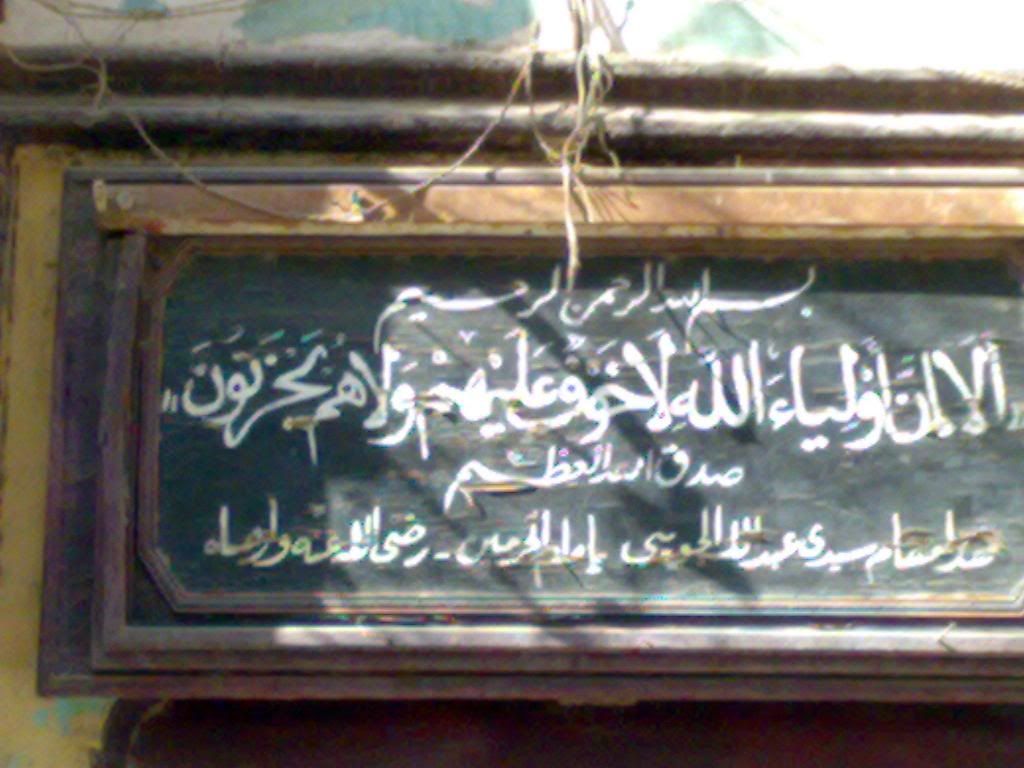 بسم الله الرحمن الرحيم
"أَلَا إِنَّ أَوْلِيَاءَ اللَّهِ لَا خَوْفٌ عَلَيْهِمْ وَلَا هُمْ يَحْزَنُونَ"
صدق الله العظيم
هذا مقام سيدي عبد الله الجويني إمام الحرمين - رضي الله عنه وأرضاه